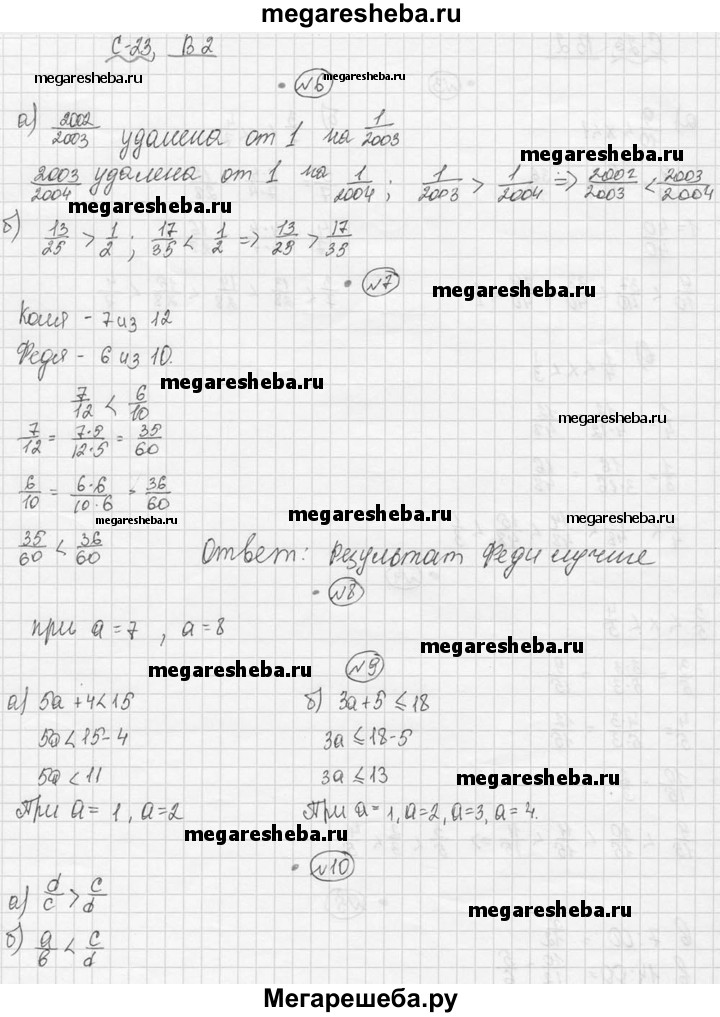 megaresheba.ru
С-23, В2
megaresheba.ru megaresheba.ru
• №6
а) 2002/2003 удалена от 1 на 1/2003
megaresheba.ru
2003/2004 удалена от 1 на 1/2004; 1/2003 > 1/2004 => 2002/2003 < 2003/2004
megaresheba.ru
б) 13/25 > 1/2; 17/35 < 1/2 => 13/25 > 17/35
• №7
megaresheba.ru
Коля - 7 из 12
Федя - 6 из 10.
megaresheba.ru
7/12 < 6/10
megaresheba.ru
7/12 = 7·5/12·5 = 35/60
6/10 = 6·6/10·6 = 36/60
megaresheba.ru megaresheba.ru megaresheba.ru
35/60 < 36/60 Ответ: Результат Феди лучше
• №8
при а = 7, а = 8
megaresheba.ru
№9
megaresheba.ru
а) 5а + 4 < 15 б) 3а + 5 ⩽ 18
5а < 15 - 4 3а ⩽ 18 - 5
5а < 11 3а ⩽ 13
megaresheba.ru
При а = 1, а = 2 При а = 1, а = 2, а = 3, а = 4.
megaresheba.ru
• №10
а) d/c > c/d
megaresheba.ru
б) a/b < c/d
Мегарешеба.ру